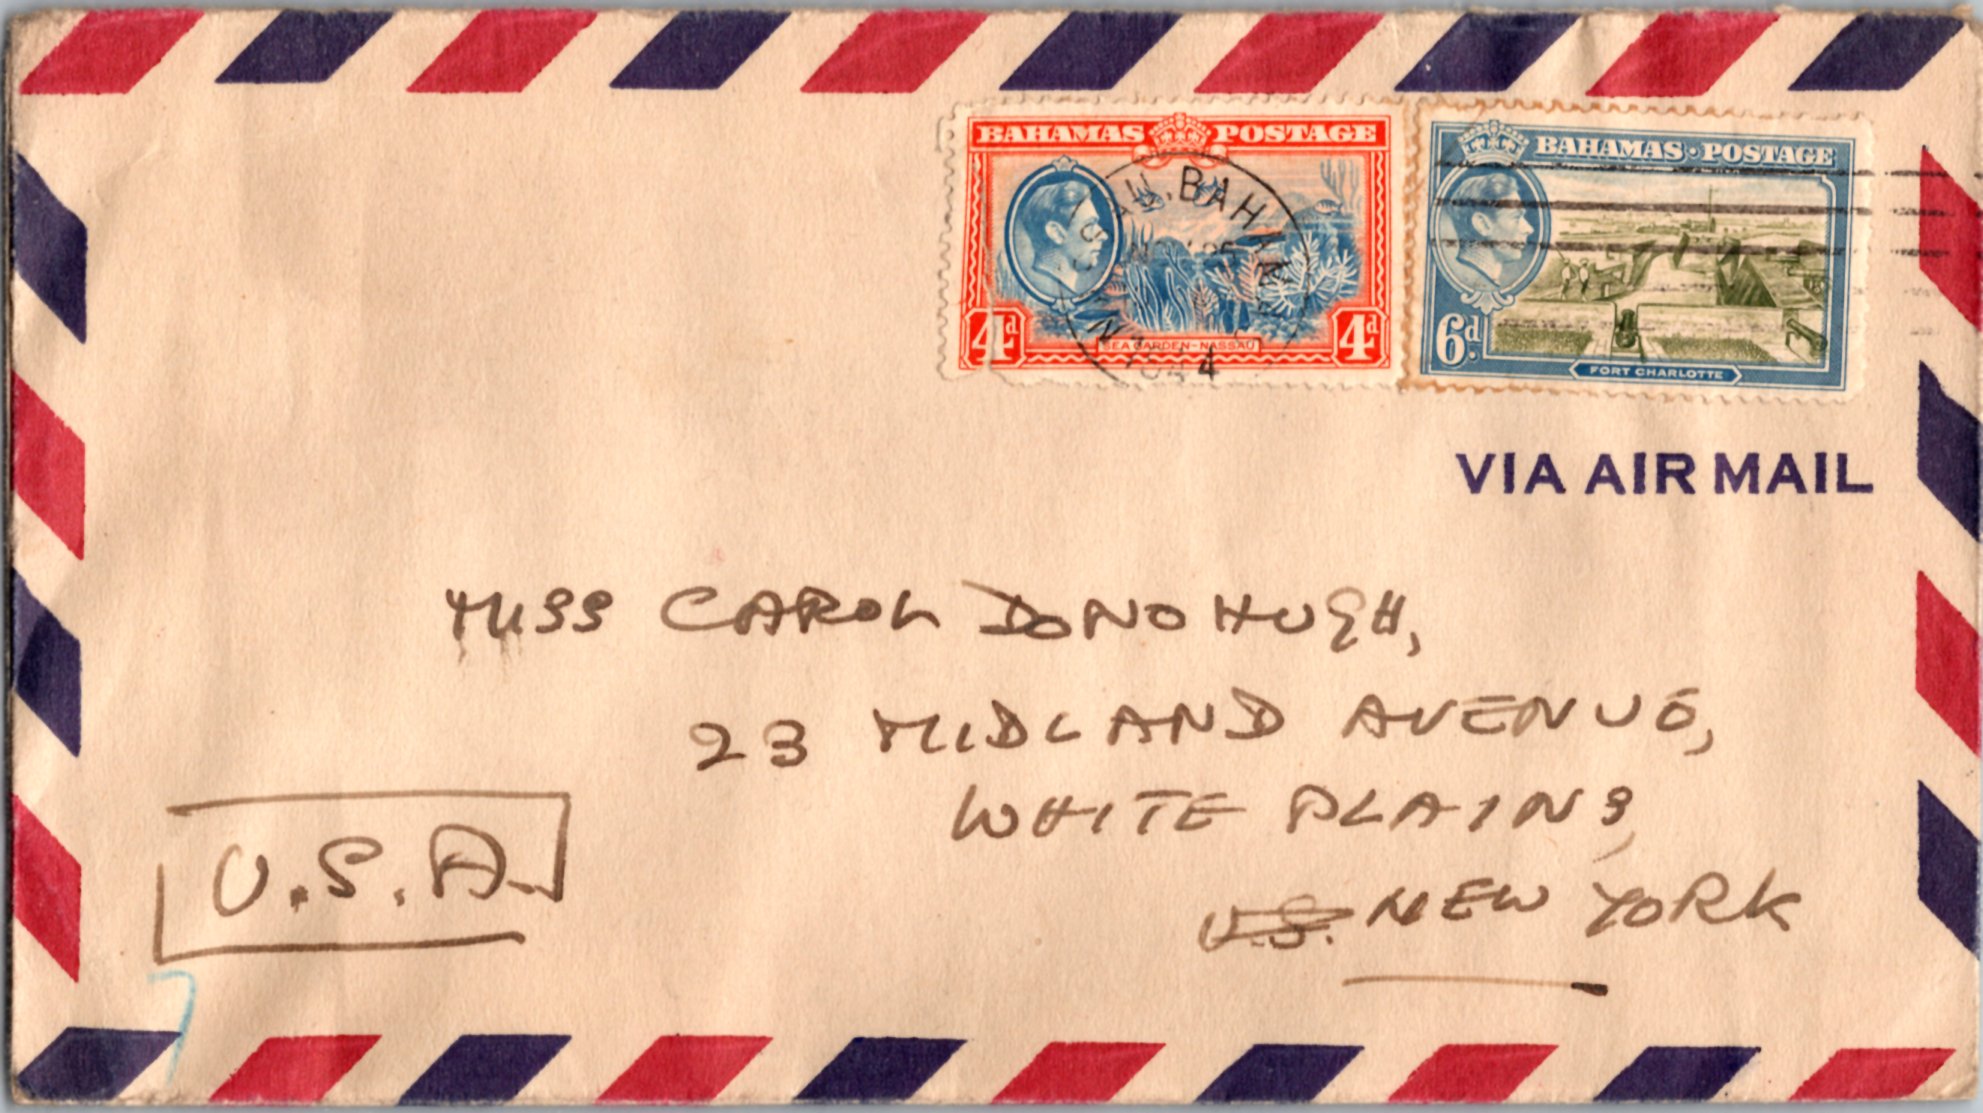 BAHAMAS POSTAGE
4d 4d
SEA GARDEN-NASSAU
BAHAMAS · POSTAGE
6d.
FORT CHARLOTTE
VIA AIR MAIL
MISS CAROL DONOHUGH,
23 MIDLAND AVENUE,
WHITE PLAINS,
U.S. NEW YORK
U.S.A.